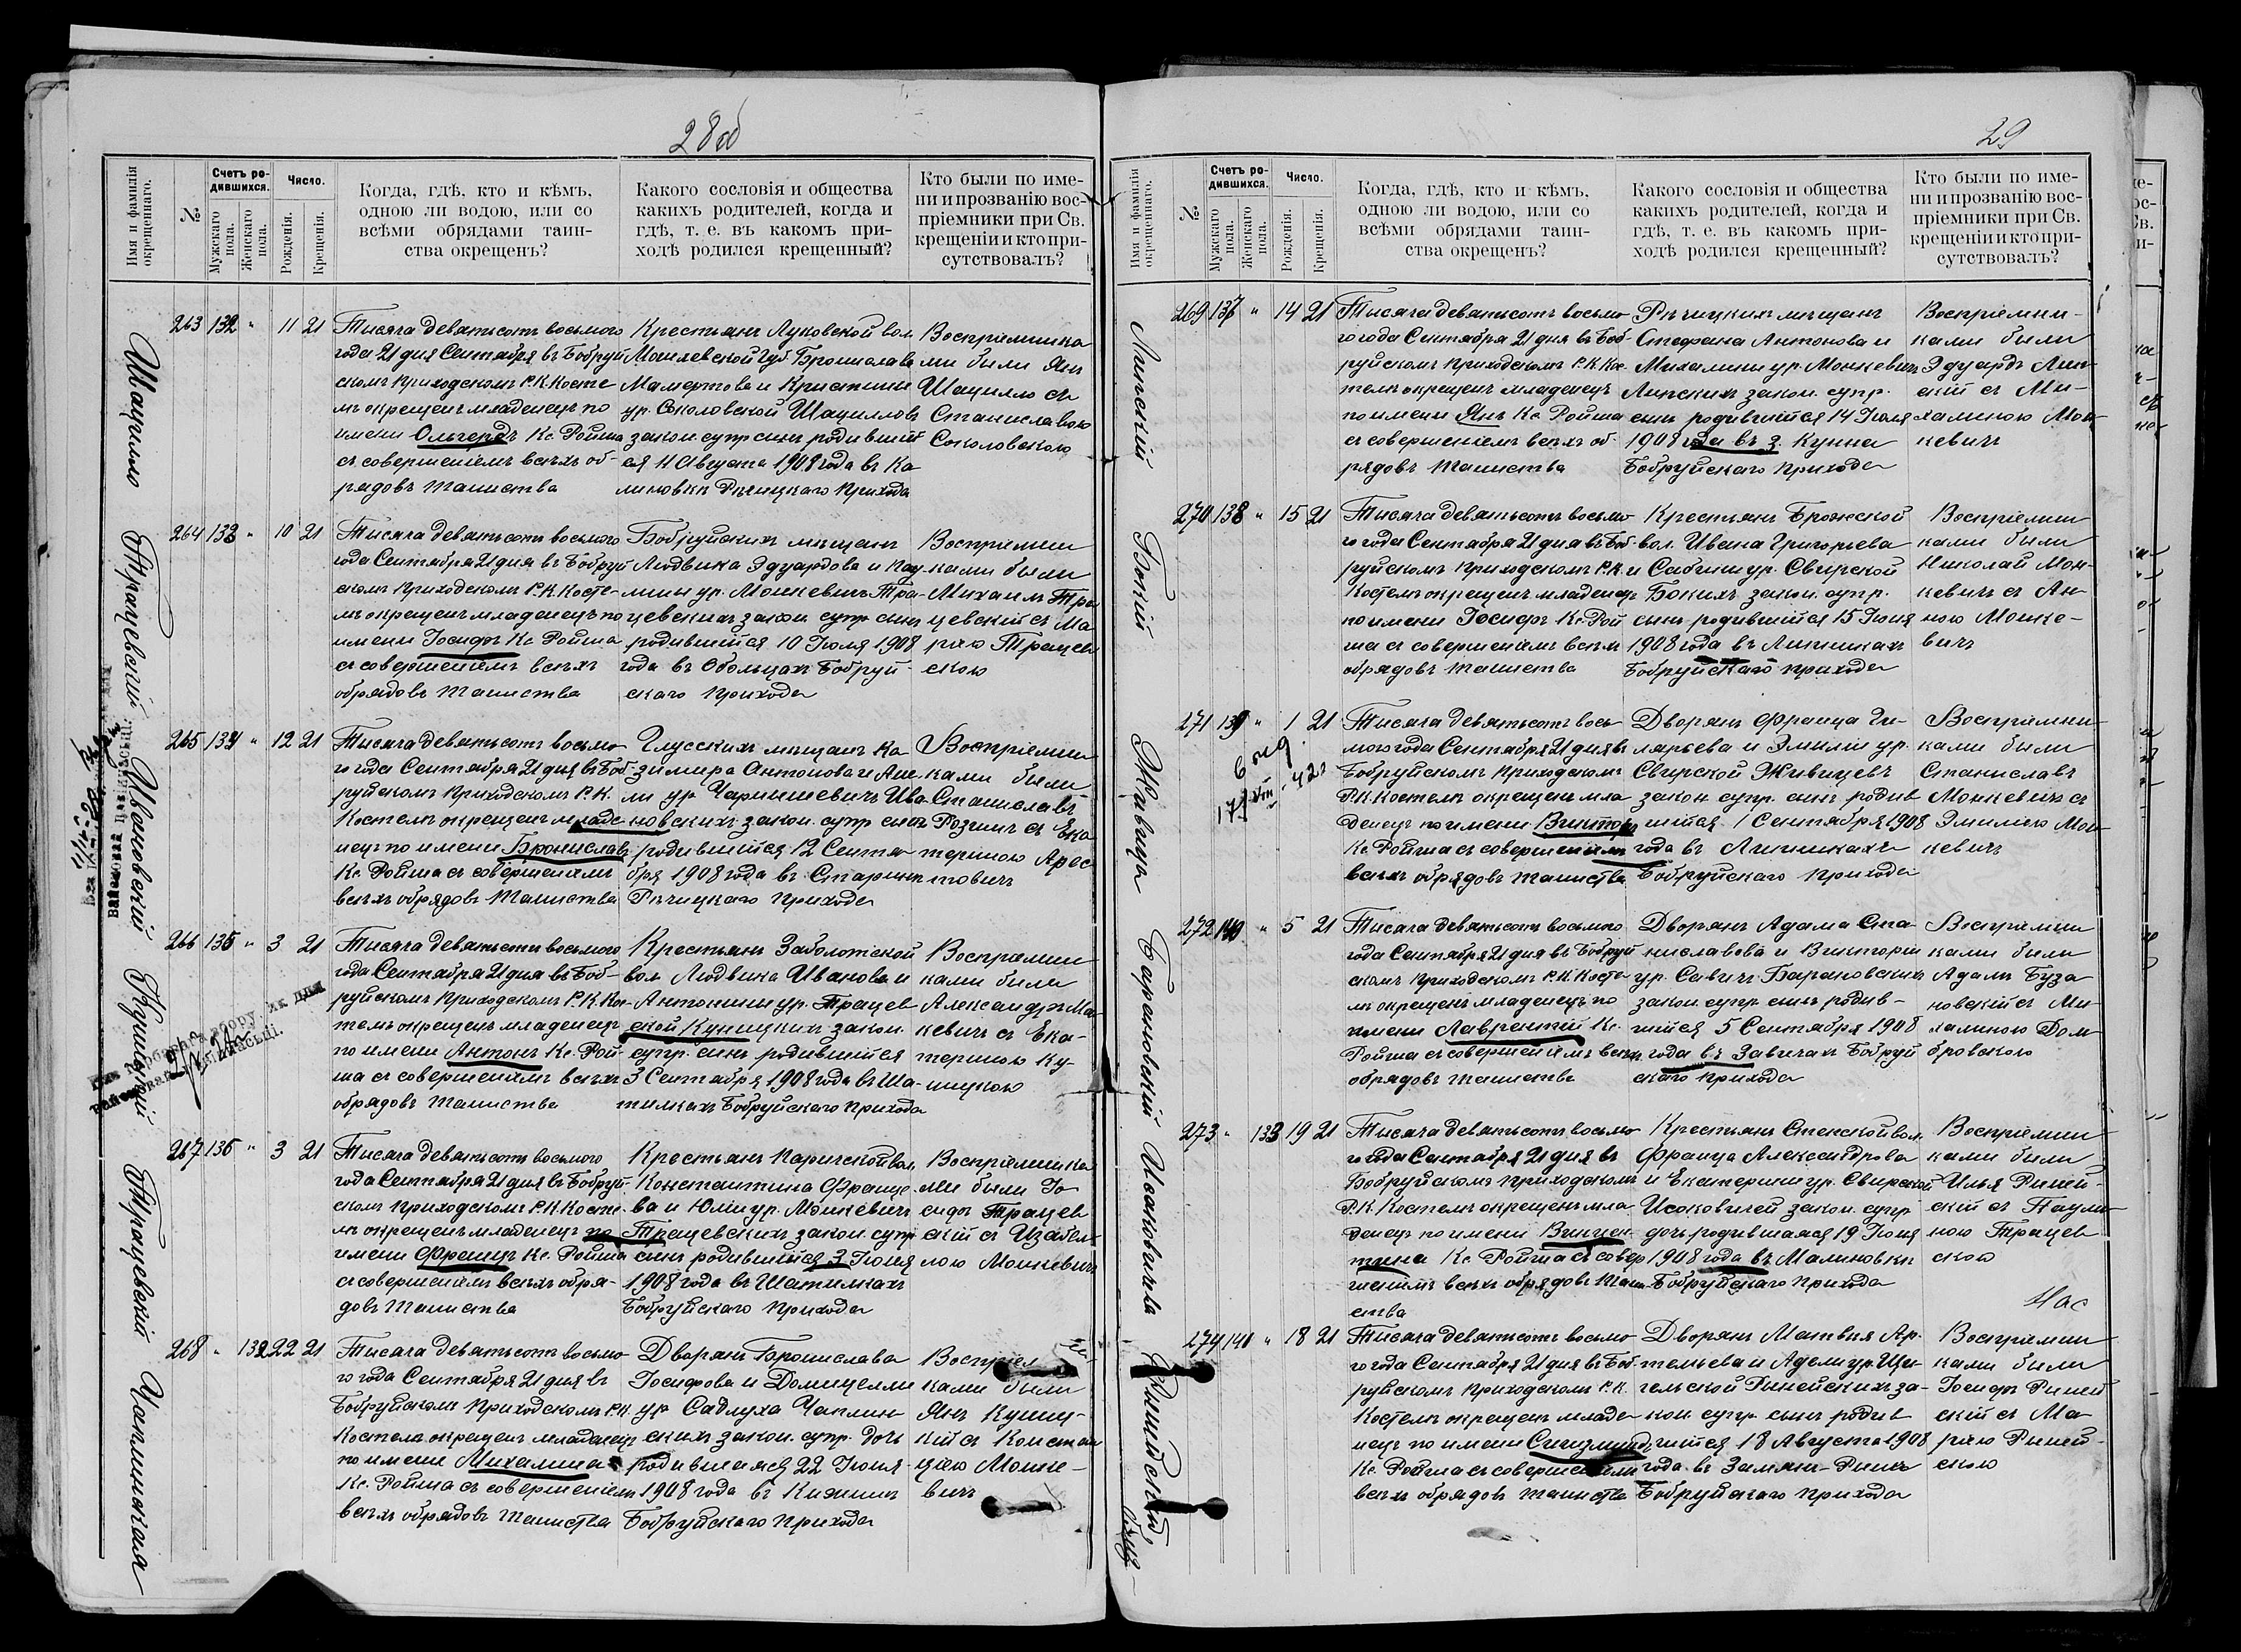 28об
Имя и фамилія окрещеннаго.
№
Счетъ родившихся.
Мужскаго пола.
Женскаго пола.
Число.
Рожденія.
Крещенія.
Когда, гдѣ, кто и кѣмъ,
одною ли водою, или со
всѣми обрядами таин-
ства окрещенъ?
Какого сословія и общества
какихъ родителей, когда и
гдѣ, т. е. въ какомъ при-
ходѣ родился крещенный?
Кто были по име-
ни и прозванію вос-
пріемники при Св.
крещеніи и кто при-
сутствовалъ?
Шацилло
263 132 " 11 21
Тысяча девятьсотъ восьмого
года 21 дня Сентября въ Бобруй
скомъ приходскомъ Р.К. Косте
лѣ окрещенъ младенецъ по
имени Ольгердъ Кс. Ройша
съ совершеніемъ всѣхъ об-
рядовъ таинства
Крестьянъ Луковской вол
Могилевской губ Бронислава
Мамертова и Кристины
ур. Соколовской Шацилловъ
закон. супр сынъ родившій
ся 11 Августа 1908 года въ Ка
линовкѣ Рѣчицкаго прихода
Воспріемника
ми были Янъ
Шацилло съ
Станиславою
Соколовскою
Трацевскій
264 133 " 10 21
Тысяча девятьсотъ восьмого
года Сентября 21 дня въ Бобруй
скомъ приходскомъ Р.К. Косте-
лѣ окрещенъ младенецъ по
имени Іосифъ Кс. Ройша
съ совершеніемъ всѣхъ
обрядовъ таинства
Бобруйскихъ мѣщанъ
Людвика Эдуардова и Пау-
лины ур. Монкевичъ Тра-
цевскихъ закон. супр сынъ
родившійся 10 Іюля 1908
года въ Стольцахъ Бобруй-
скаго прихода
Воспріемни
ками были
Михаилъ Тра
цевскій съ Ма
ріею Трацев
скою
Ивановскій
265 134 " 12 21
Тысяча девятьсотъ восьмо
го года Сентября 21 дня въ Боб-
руйскомъ приходскомъ Р.К.
Костелѣ окрещенъ младе
нецъ по имени Брониславъ
Кс. Ройша съ совершеніемъ
всѣхъ обрядовъ таинства
Глусскихъ мѣщанъ Ка
зимира Антонова и Ане
ли ур Чарнышевичъ Ива
новскихъ закон. супр сынъ
родившійся 12 Сентя
бря 1908 года въ Старинѣ
Рѣчицкаго прихода
Воспріемни
ками были
Станиславъ
Розинъ съ Ека
териною Арес
товичъ
Куницкій
266 135 " 3 21
Тысяча девятьсотъ восьмого
года Сентября 21 дня въ Боб-
руйскомъ приходскомъ Р.К. Кос-
телѣ окрещенъ младенецъ
по имени Антонъ Кс. Рой-
ша съ совершеніемъ всѣхъ
обрядовъ таинства
Крестьянъ Заболотской
вол Людвика Иванова и
Антонины ур. Трацев
ской Куницкихъ закон.
супр. сынъ родившійся
3 Сентября 1908 года въ Ша-
тилкахъ Бобруйскаго прихода
Воспріемни
ками были
Александръ Ма-
кевичъ съ Ека-
териною Ку-
ницкою
Трацевскій
267 136 " 3 21
Тысяча девятьсотъ восьмого
года Сентября 21 дня въ Бобруй-
скомъ приходскомъ Р.К. Косте-
лѣ окрещенъ младенецъ по
имени Францъ Кс. Ройша
съ совершеніемъ всѣхъ обря-
довъ таинства
Крестьянъ Паричской вол.
Константина Францо-
ва и Юліи ур. Монкевичъ
Трацевскихъ закон. супр
сынъ родившійся 3 Іюня
1908 года въ Шатилкахъ
Бобруйскаго прихода
Воспріемника
ми были Іо
сифъ Трацев
скій съ Изабел-
лою Монкевичъ
Чаплинская
268 " 132 22 21
Тысяча девятьсотъ восьмо
го года Сентября 21 дня въ
Бобруйскомъ приходскомъ Р.К.
Костелѣ окрещенъ младенецъ
по имени Михалина
Кс. Ройша съ совершеніемъ
всѣхъ обрядовъ таинства
Дворянъ Бронислава
Іосифова и Домицелли
ур Садлуха Чаплин
скихъ закон. супр. дочь
родившаяся 22 Іюня
1908 года въ Княжинѣ
Бобруйскаго прихода
ками были
Янъ Куниц-
кій съ Констан
ціею Монке-
вичъ
29
Имя и фамилія окрещеннаго.
№
Счетъ родившихся.
Мужскаго пола.
Женскаго пола.
Число.
Рожденія.
Крещенія.
Когда, гдѣ, кто и кѣмъ,
одною ли водою, или со
всѣми обрядами таин-
ства окрещенъ?
Какого сословія и общества
какихъ родителей, когда и
гдѣ, т. е. въ какомъ при-
ходѣ родился крещенный?
Кто были по име-
ни и прозванію вос-
пріемники при Св.
крещеніи и кто при-
сутствовалъ?
Липскій
269 137 " 14 21
Тысяча девятьсотъ восьмо-
го года Сентября 21 дня въ Боб-
руйскомъ приходскомъ Р.К. Кос-
телѣ окрещенъ младенецъ
по имени Янъ Кс. Ройша
съ совершеніемъ всѣхъ об-
рядовъ таинства
Рѣчицкихъ мѣщанъ
Стефана Антонова и
Михалины ур. Монкевичъ
Липскихъ закон. супр.
сынъ родившійся 14 Іюля
1908 года въ з. Кунна
Бобруйскаго прихода
Воспріемни-
ками были
Эдуардъ Лип-
скій съ Ми-
халиною Мон-
кевичъ
Бокій
270 138 " 15 21
Тысяча девятьсотъ восьмо-
го года Сентября 21 дня въ Боб-
руйскомъ приходскомъ Р.К.
Костелѣ окрещенъ младенецъ
по имени Іосифъ Кс. Рой
ша съ совершеніемъ всѣхъ
обрядовъ таинства
Крестьянъ Брожской
вол. Ивана Григорьева
и Сабины ур. Свирской
Бокихъ закон. супр.
сынъ родившійся 15 Іюня
1908 года въ Липникахъ
Бобруйскаго прихода
Воспріемни
ками были
Николай Мон-
кевичъ съ Ан-
ною Монке-
вичъ
Живица
271 139 " 1 21
Тысяча девятьсотъ вось-
мого года Сентября 21 дня въ
Бобруйскомъ приходскомъ
Р.К. Костелѣ окрещенъ мла
денецъ по имени Викторъ
Кс. Ройша съ совершеніемъ
всѣхъ обрядовъ таинства
Дворянъ Франца Ги-
лярьева и Эмиліи ур.
Свирской Живицевъ
закон. супр. сынъ родив
шійся 1 Сентября 1908
года въ Липникахъ
Бобруйскаго прихода
Воспріемни-
ками были
Станиславъ
Монкевичъ съ
Эмиліею Мон-
кевичъ
Барановскій
272 140 " 5 21
Тысяча девятьсотъ восьмого
года Сентября 21 дня въ Бобруй
скомъ приходскомъ Р.К. Косте-
лѣ окрещенъ младенецъ по
имени Лаврентій Кс.
Ройша съ совершеніемъ всѣхъ
обрядовъ таинства
Дворянъ Адама Ста-
ниславова и Викторіи
ур. Савичъ Барановскихъ
закон супр сынъ родив-
шійся 5 Сентября 1908
года въ Завичахъ Бобруй
скаго прихода
Воспріемни
ками были
Адамъ Буза-
новскій съ Ми-
халиною Дом-
бровскою
Исаковичъ
273 " 133 19 21
Тысяча девятьсотъ восьмо-
го года Сентября 21 дня въ
Бобруйскомъ приходскомъ
Р.К. Костелѣ окрещенъ мла
денецъ по имени Винцен-
тина Кс. Ройша съ совер
шеніемъ всѣхъ обрядовъ таин
ства
Крестьянъ Стенской вол.
Франца Александрова
и Екатерины ур. Свирской
Исаковичей закон. супр
дочь родившаяся 19 Іюня
1908 года въ Малиновкѣ
Бобруйскаго прихода
Воспріемни
ками были
Илья Риней-
скій съ Паули-
ною Трацев
скою
274 141 " 18 21
Тысяча девятьсотъ восьмо-
го года Сентября 21 дня въ Боб-
руйскомъ приходскомъ Р.К.
Костелѣ окрещенъ младе
нецъ по имени Сигизмундъ
Кс. Ройша съ совершеніемъ
всѣхъ обрядовъ таинства
Дворянъ Матвѣя Ар-
темьева и Адели ур. Щи-
гельской Ринейскихъ за-
кон. супр. сынъ родив
шійся 18 Августа 1908
года въ
Бобруйскаго прихода
Воспріемни
ками были
Іосифъ Риней
скій съ Ма-
ріею Риней-
скою